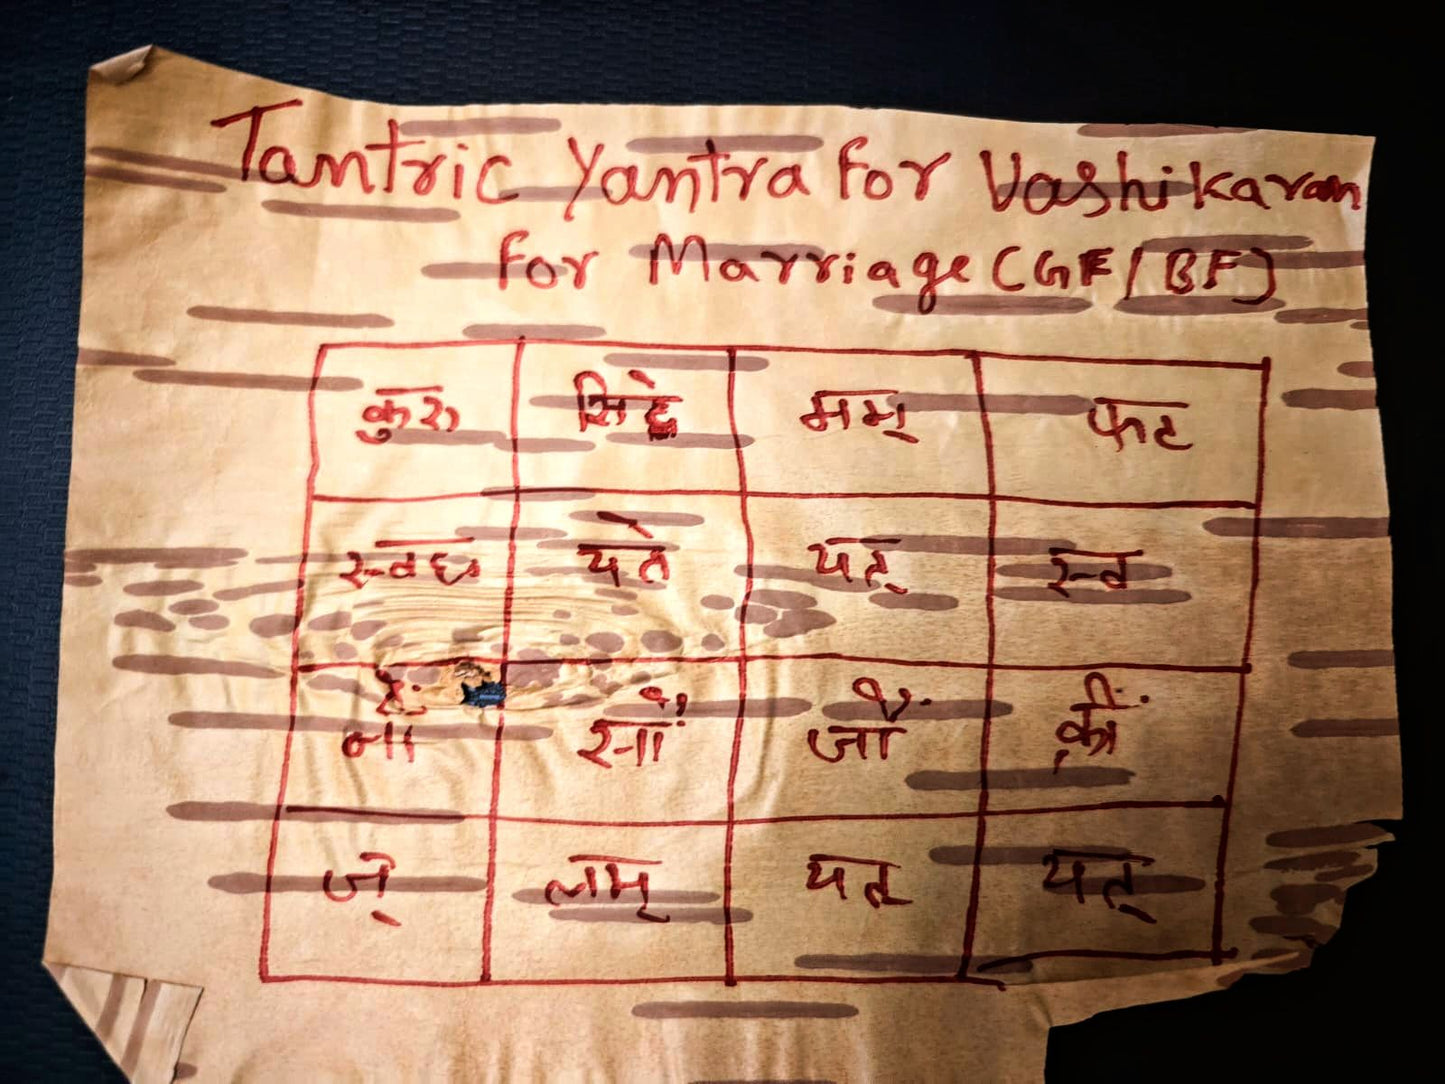 Tantric Yantra For Vashikaran
For Marriage (GF/BF)
कुरु सिद्धे मम् फट
स्वधा यते यत् स्व
जीं क्रीं
ज् लम् यत् यत्